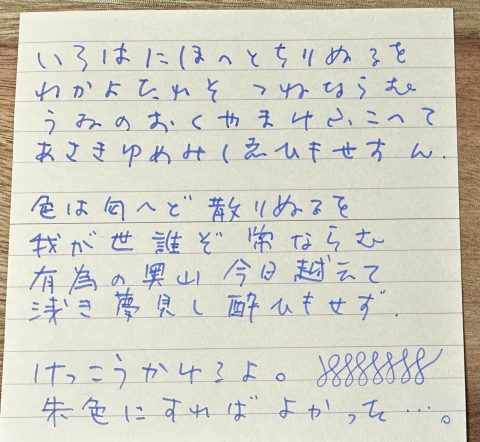 いろはにほへとちりぬるを
わかよたれそ つねならむ
うみのおくやまけふこへて
あさきゆめみしゑひもせすん.
色は匂へど 散りぬるを
我が世誰ぞ 常ならむ
有為の奥山 今日越云て
浅き夢見し 酔ひもせず.
けっこうかけるよ。
朱色にすればよかった…。